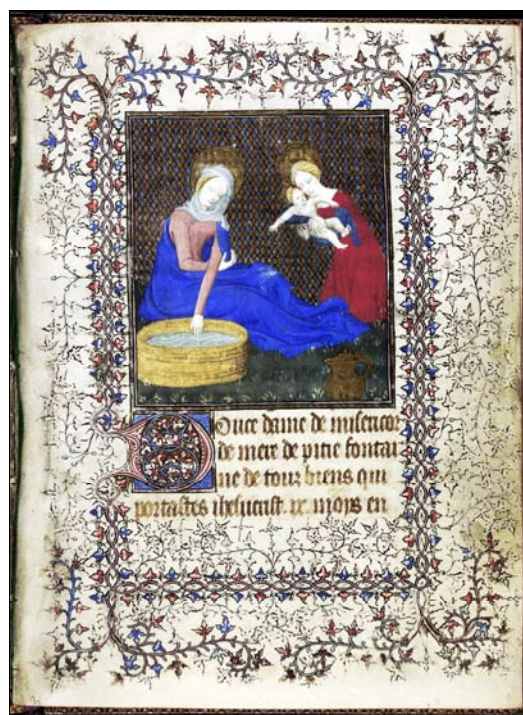 172
Douce dame de misericor
de mere de pitie fontai
ne de tour biens qui
portastes ihesucrist. ix. moys en